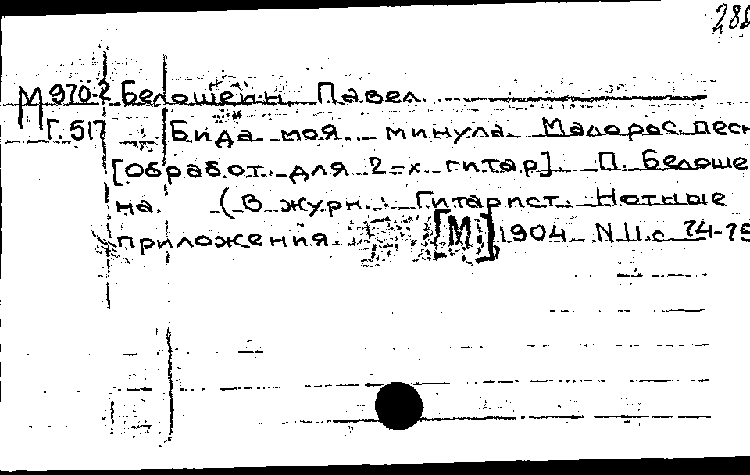 288
М 970-2 Белошеин, Павел.
Г. 517 Бида моя минула. Малорос. песн
[Обработ. для 2-х гитар] П. Белоше-
на. (В журн.: Гитарист. Нотные
приложения. [М.] 1904. N 11. с. 74-75